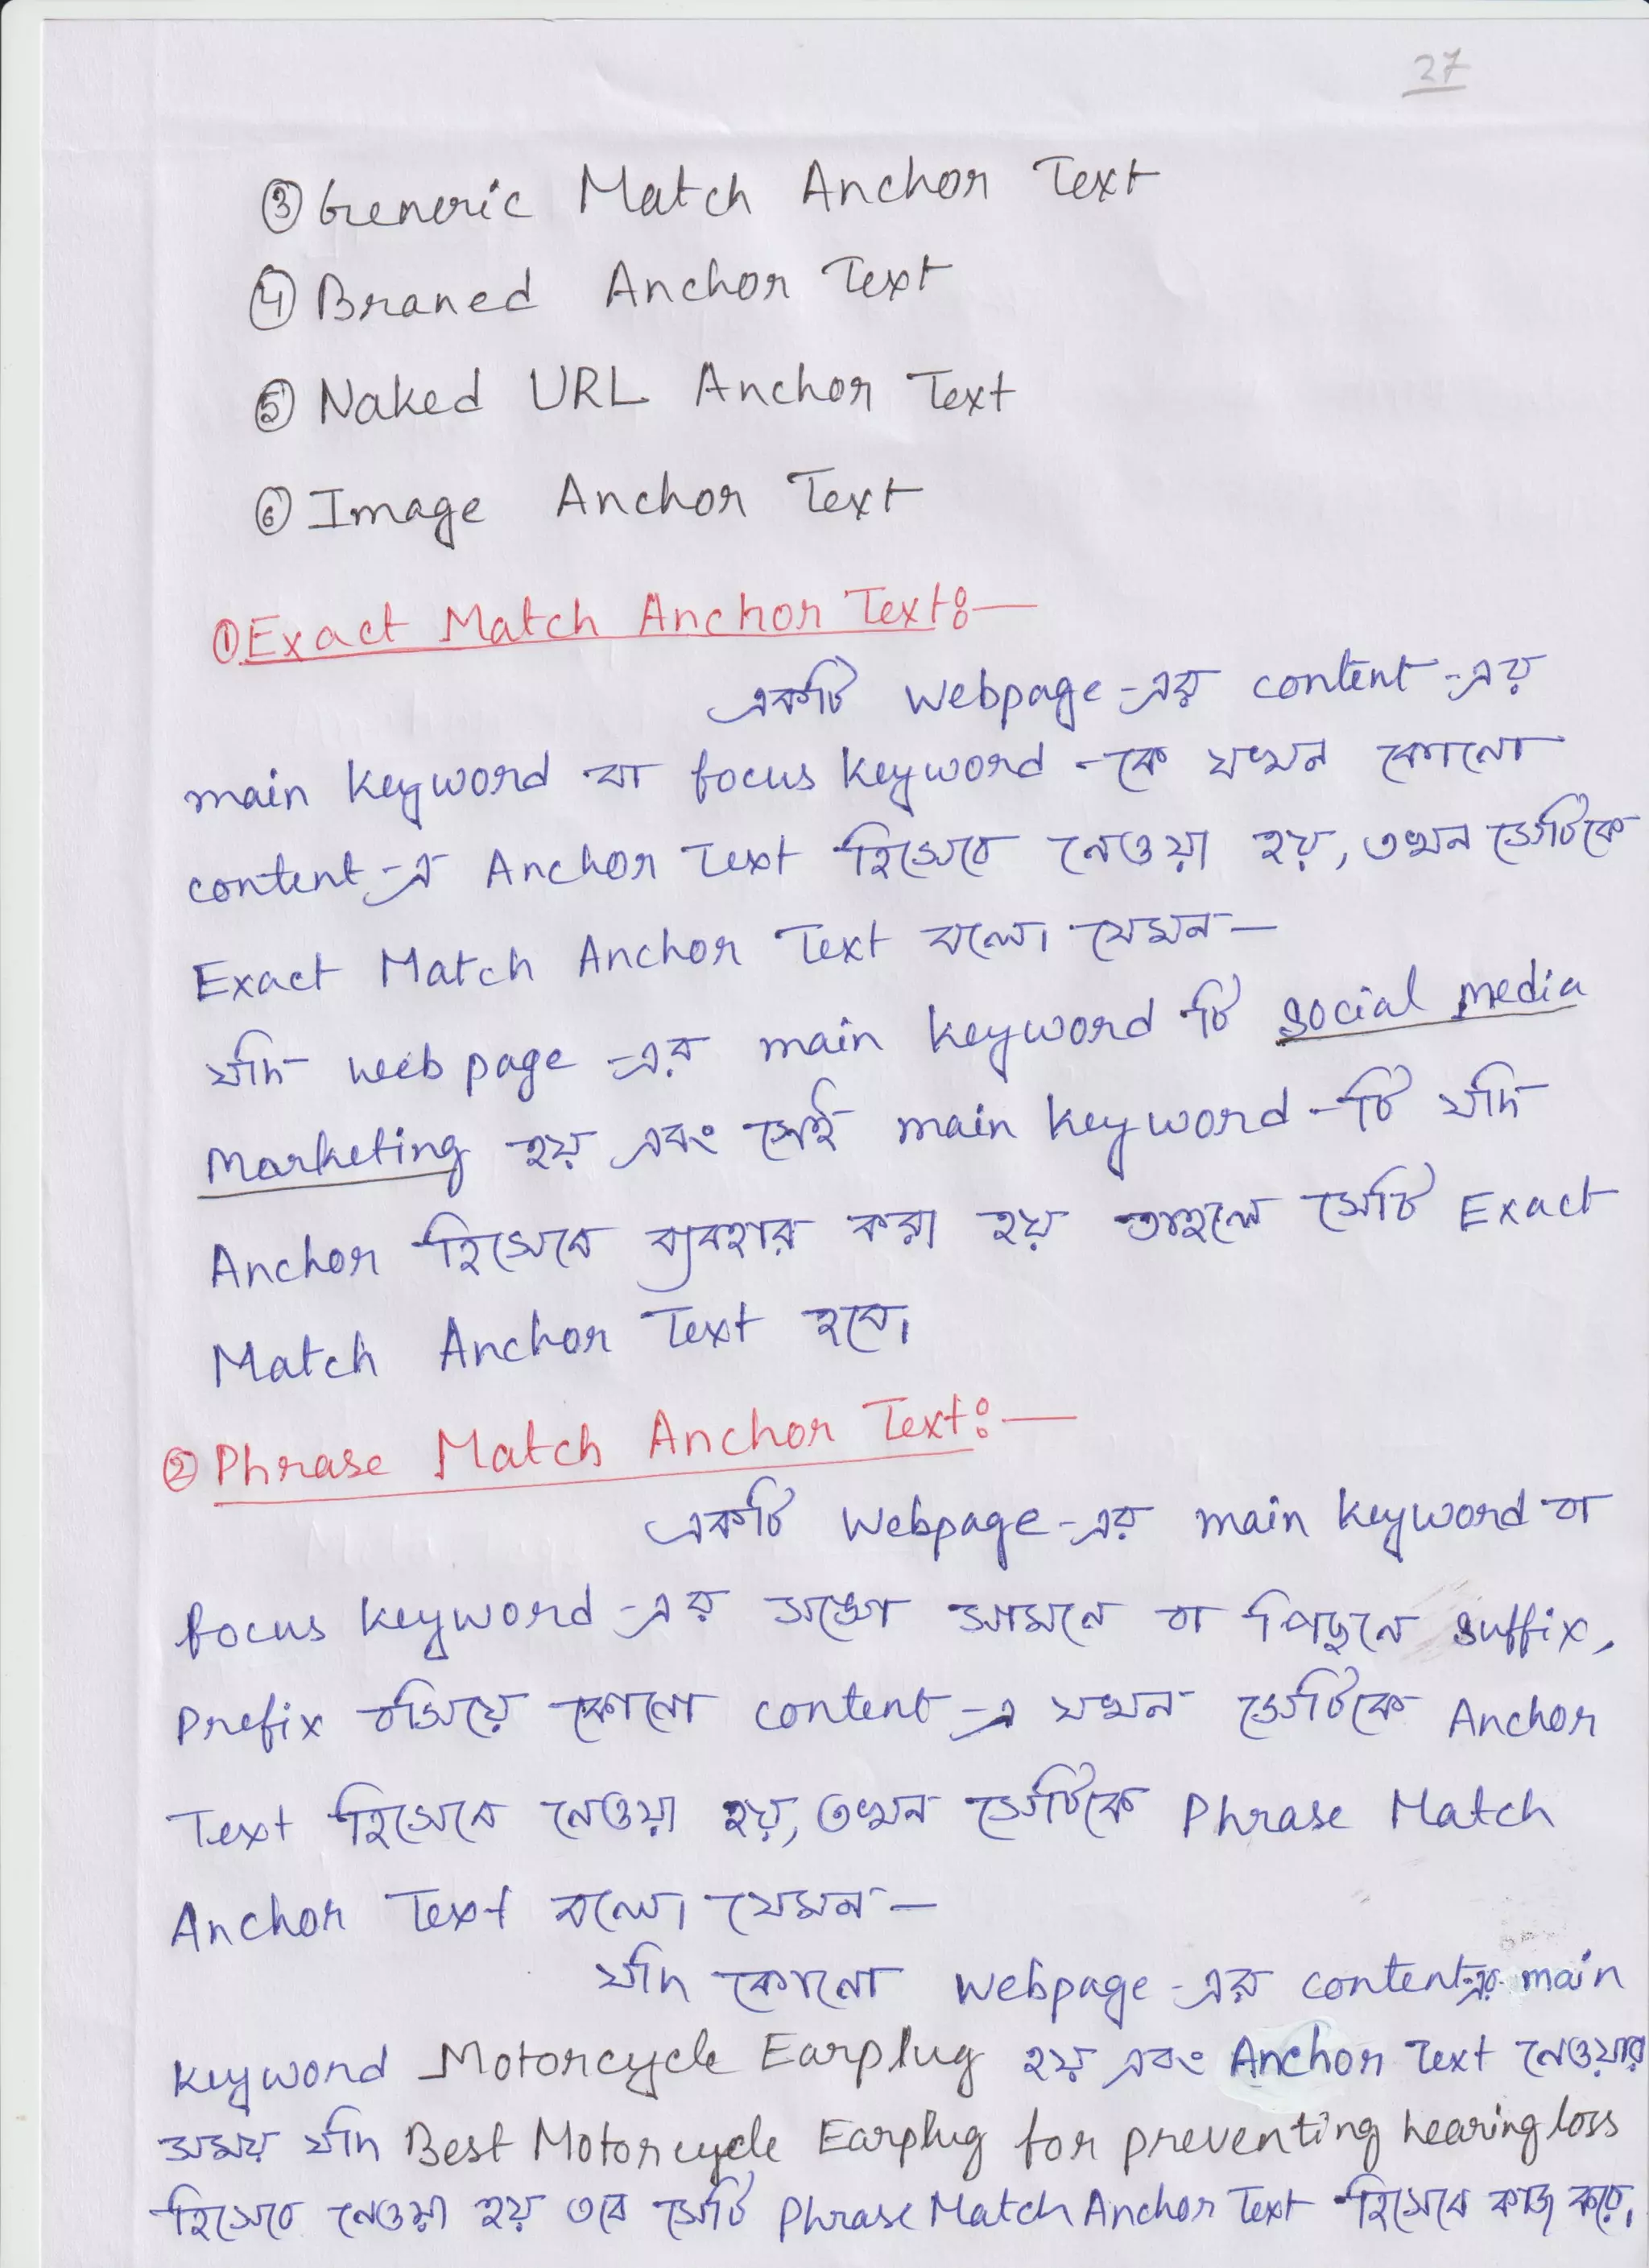 27
③ Generic Match Anchor Text
④ Braned Anchor Text
⑤ Naked URL Anchor Text
⑥ Image Anchor Text
① Exact Match Anchor Text:—
একটি webpage-এর content-এর
main keyword বা focus keyword-কে যখন কোনো
content-এ Anchor Text হিসেবে নেওয়া হয়, তখন সেটিকে
Exact Match Anchor Text বলে। যেমন—
যদি webpage-এর main keyword টি social media
Marketing হয় এবং সেই main keyword-টি যদি
Anchor হিসেবে ব্যবহার করা হয় তাহলে সেটি Exact
Match Anchor Text হবে।
② Phrase Match Anchor Text:—
একটি webpage-এর main keyword বা
focus keyword-এর সঙ্গে সামনে বা পিছনে suffix,
Prefix বসিয়ে কোনো content-এ যখন সেটিকে Anchor
Text হিসেবে নেওয়া হয়, তখন সেটিকে Phrase Match
Anchor Text বলে। যেমন—
যদি কোনো webpage-এর content-এর main
keyword Motorcycle Earplug হয় এবং Anchor Text নেওয়ার
সময় যদি Best Motorcycle Earplug for preventing hearing loss
হিসেবে নেওয়া হয় তবে সেটি Phrase Match Anchor Text হিসেবে কাজ করে।